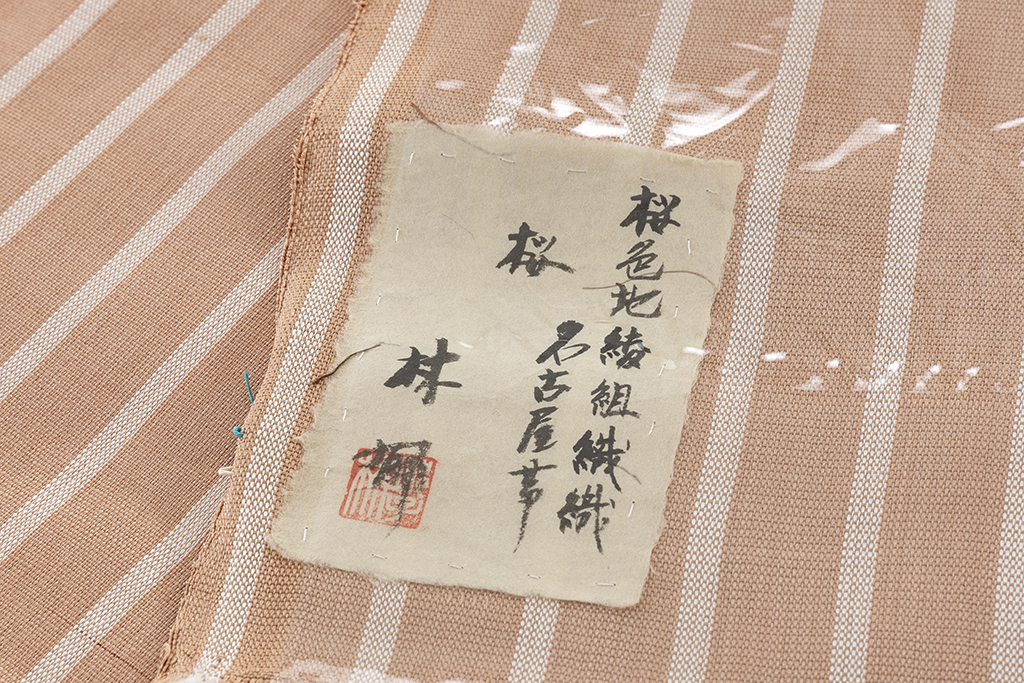 桜色地綾組織織
名古屋帯
桜
林